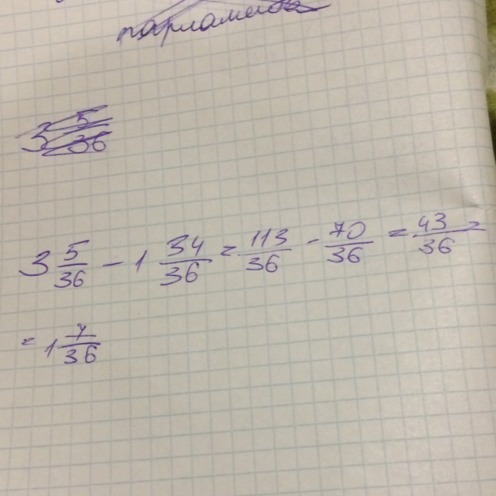 парламента
3 5/36
3 5/36 - 1 34/36 = 113/36 - 70/36 = 43/36 =
= 1 7/36